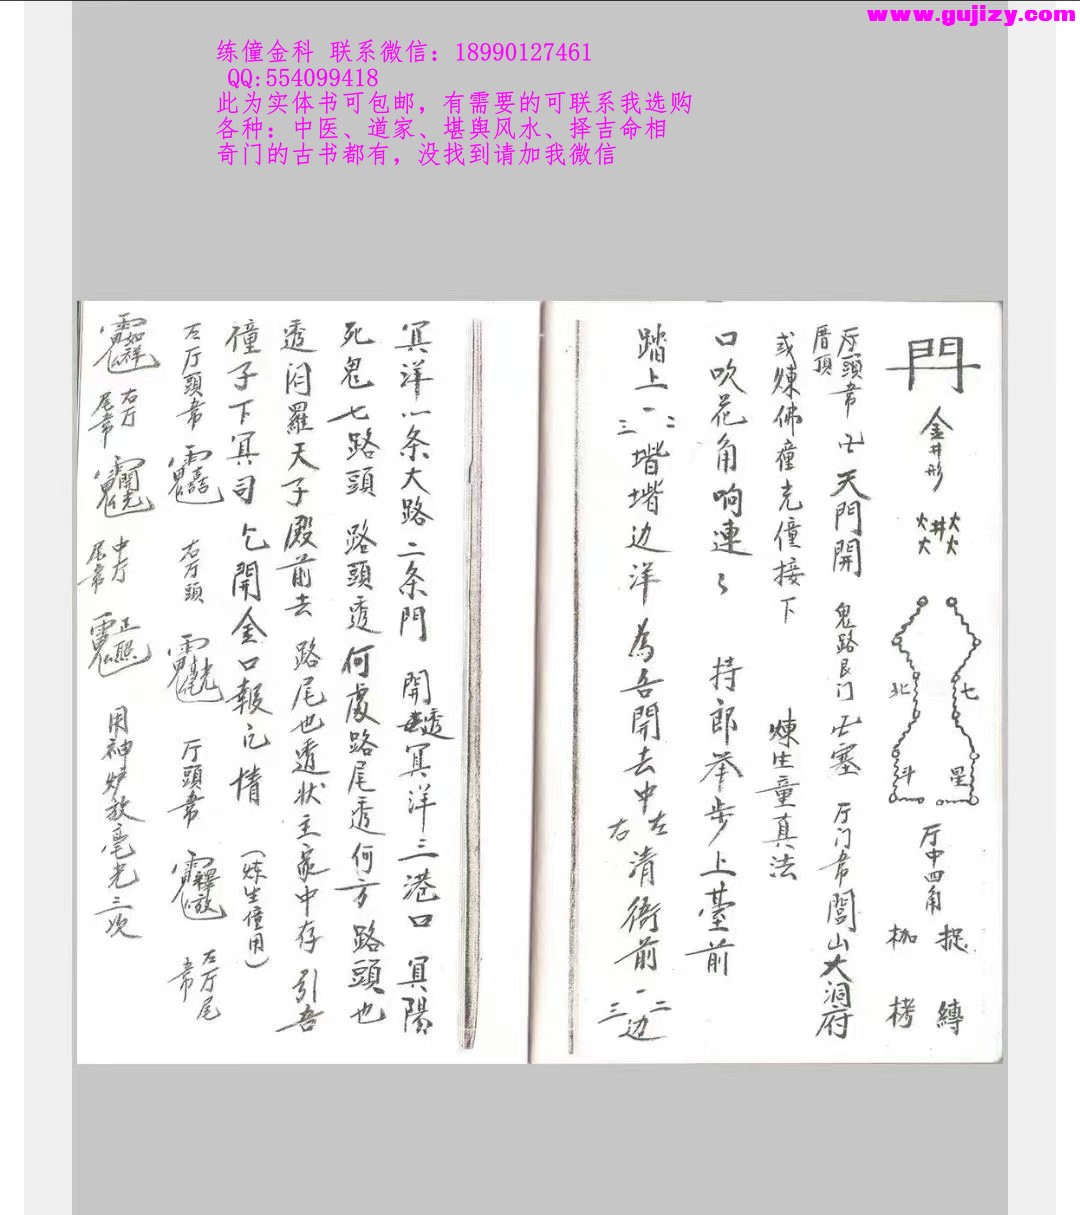 www.gujizy.com
练僮金科 联系微信：18990127461
QQ:554099418
此为实体书可包邮，有需要的可联系我选购
各种：中医、道家、堪舆风水、择吉命相
奇门的古书都有，没找到请加我微信
門 金井形
火火井火火
七星
北斗
厅中四角 捉縛枷栲
厅頭
厝頂
天門開 鬼路艮门 塞 厅门 閭山大洞府
或煉佛僮 僮接下 煉生童真法
口吹花角响連 持郎举步上臺前
踏上一二三堦堦边洋 為吾開去中左右清衙前一二三边
冥洋 条大路二条門 開透冥洋三港口 冥陽
死鬼七路頭 路頭透何處路尾透何方 路頭也
透闫羅天子殿前去 路尾也透状主家中存 引吾
僮子下冥司 乞開金口報 情 （炼生僮用）
左厅頭 右厅頭 厅頭 左厅尾
右厅尾 中厅尾 用神炉放毫光三次